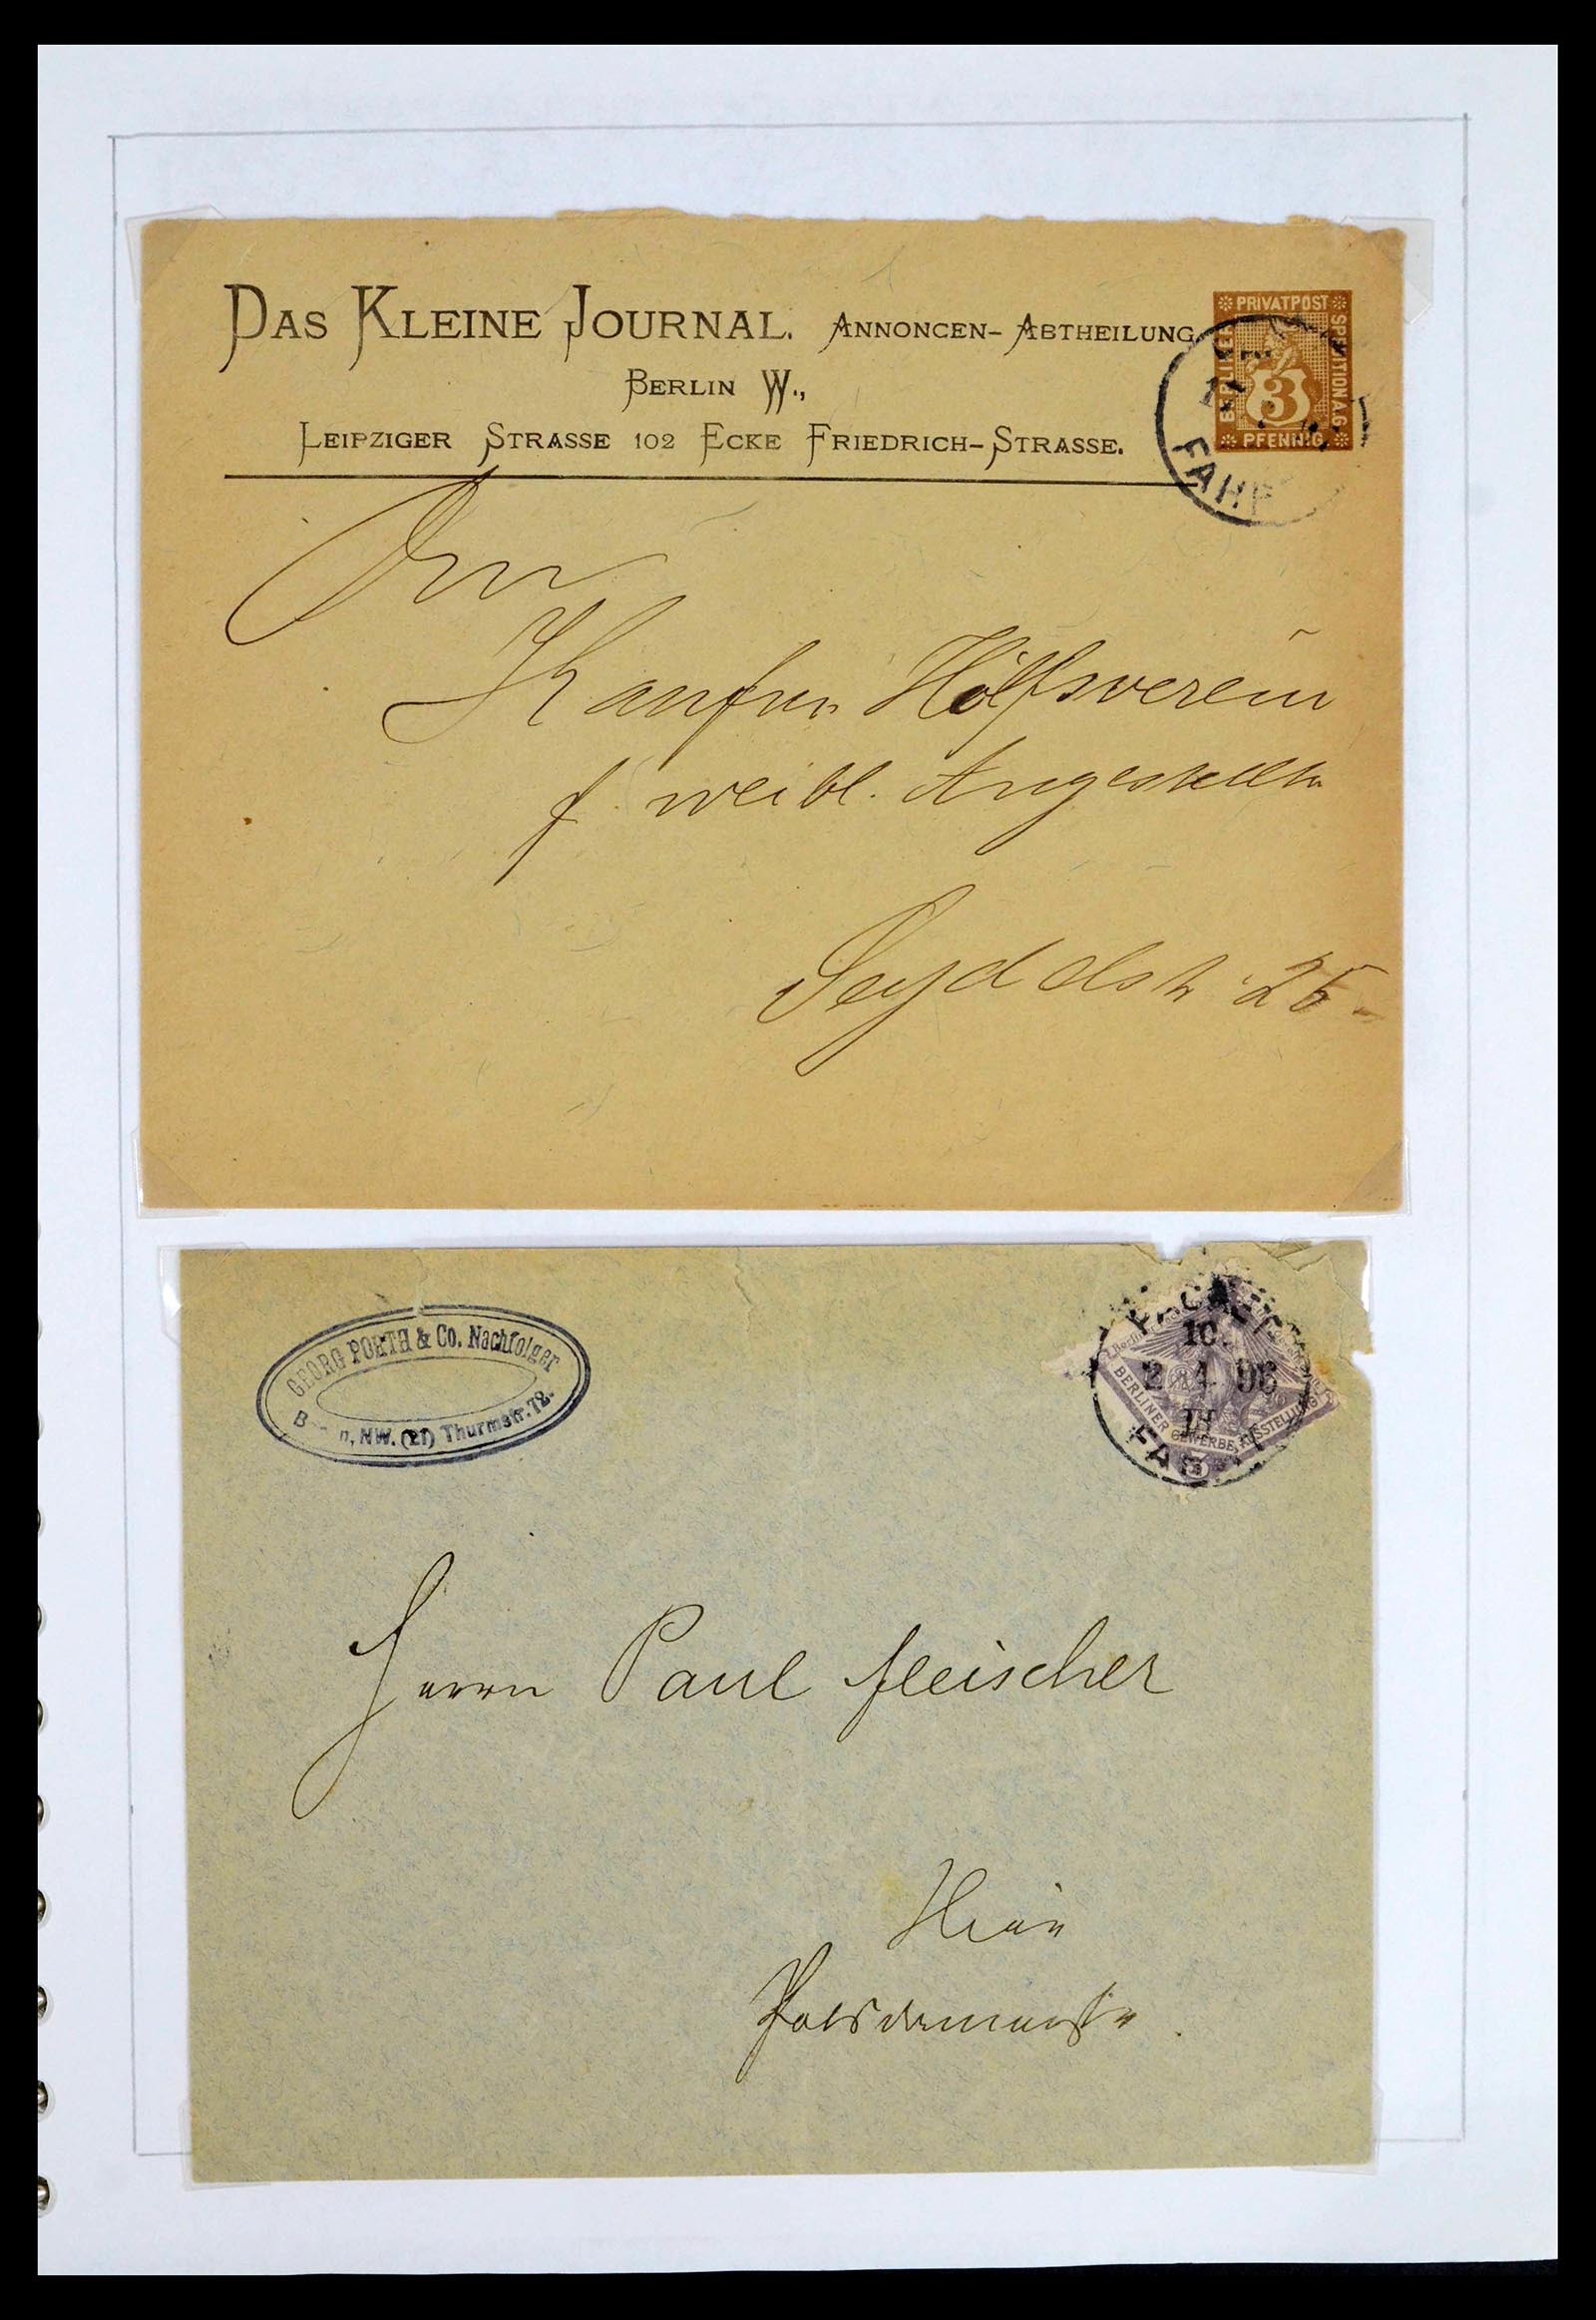 DAS KLEINE JOURNAL. ANNONCEN-ABTHEILUNG
BERLIN W.,
LEIPZIGER STRASSE 102 ECKE FRIEDRICH-STRASSE.
PRIVATPOST
BERLINER
SPEDITION A.G.
3
PFENNIG
FAHR
Den
Kaufm. Hölfsverein
f. weibl. Angestellte
Seydelstr. 25
GEORG PORTH & Co. Nachfolger
NW. (21) Thurmstr. 78.
PACKET
10.
2 1 96
II
FAHR
BERLINER GEWERBE AUSSTELLUNG
3
Herrn Paul Fleischer
Hier